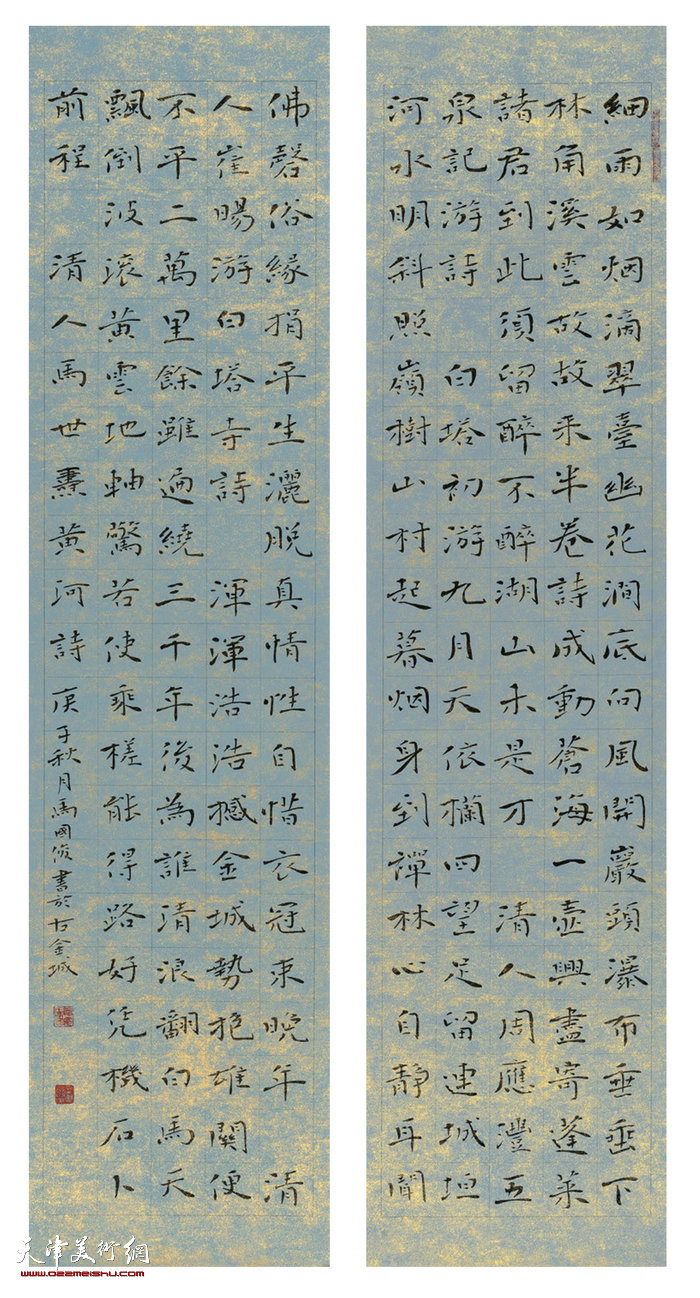 細雨如烟滴翠臺幽花澗底向風開巖頭瀑布垂垂下
林角溪雲故故来半卷詩成動蒼海一壺興盡寄蓬萊
諸君到此須留醉不醉湖山未是才 清人周應灃五
泉記游詩 白塔初游九月天依欄四望足留連城垣
河水明斜照嶺樹山村起暮烟身到禪林心自静耳聞
佛磬俗緣捐平生灑脱真情性自惜衣冠束晚年 清
人崔暘游白塔寺詩 渾渾浩浩撼金城勢抱雄關便
不平二萬里餘雖過繞三千年後為誰清浪翻白馬天
飄倒波滚黄雲地軸驚若使乘槎能得路好凭機石卜
前程 清人馬世燾黄河詩 庚子秋月馬國俊書於古金城
天津美術網
www.022meishu.com